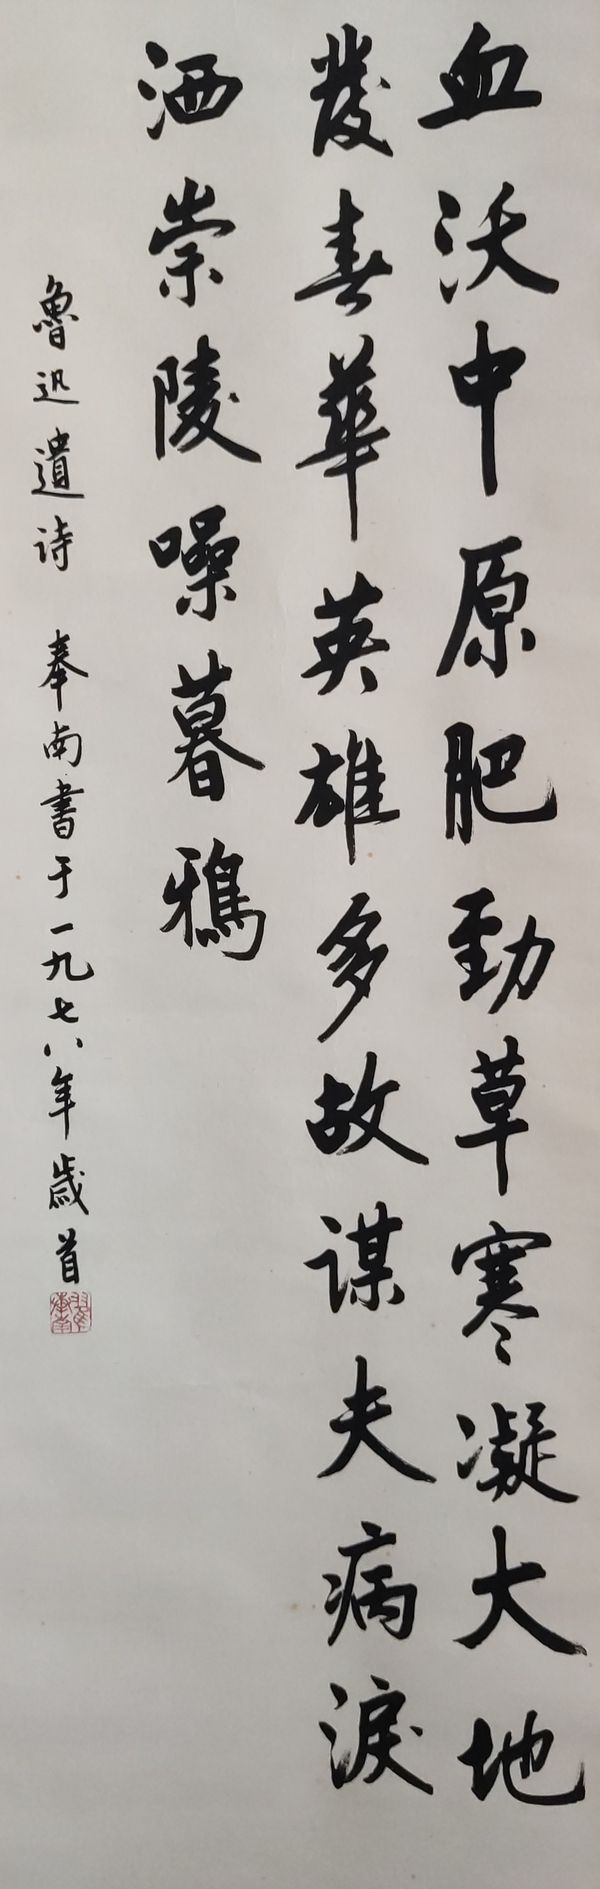 血沃中原肥劲草寒凝大地
发春華英雄多故谋夫病淚
洒崇陵噪暮鴉
魯迅遺诗 奉南书于一九七八年歲首